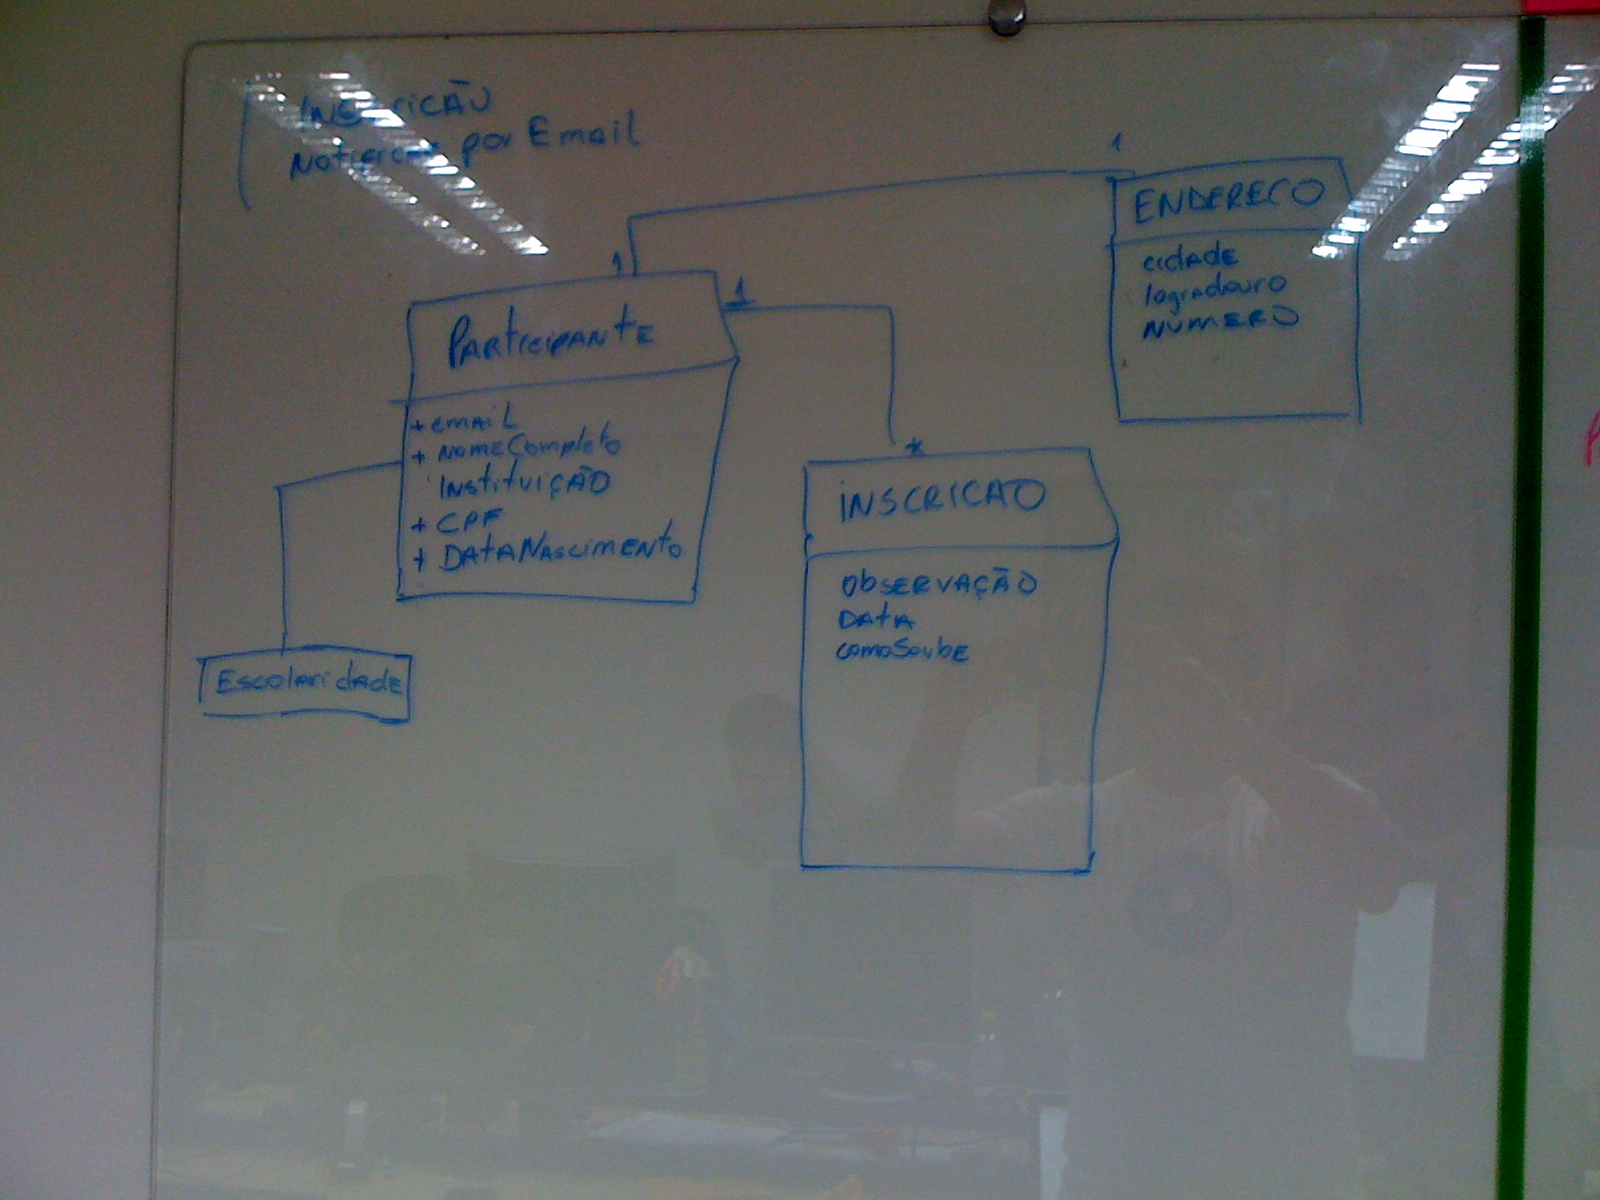 INSCRICÃO
Notificar por Email
1
ENDERECO
cidade
logradouro
NUMERO
1
1
PARTICIPANTE
+ EMAIL
+ NOMECompleto
INStituIÇÃO
+ CPF
+ DATANASCIMENTO
*
INSCRICAO
ObSERVAÇÃO
DATA
comoSoubE
Escolaridade